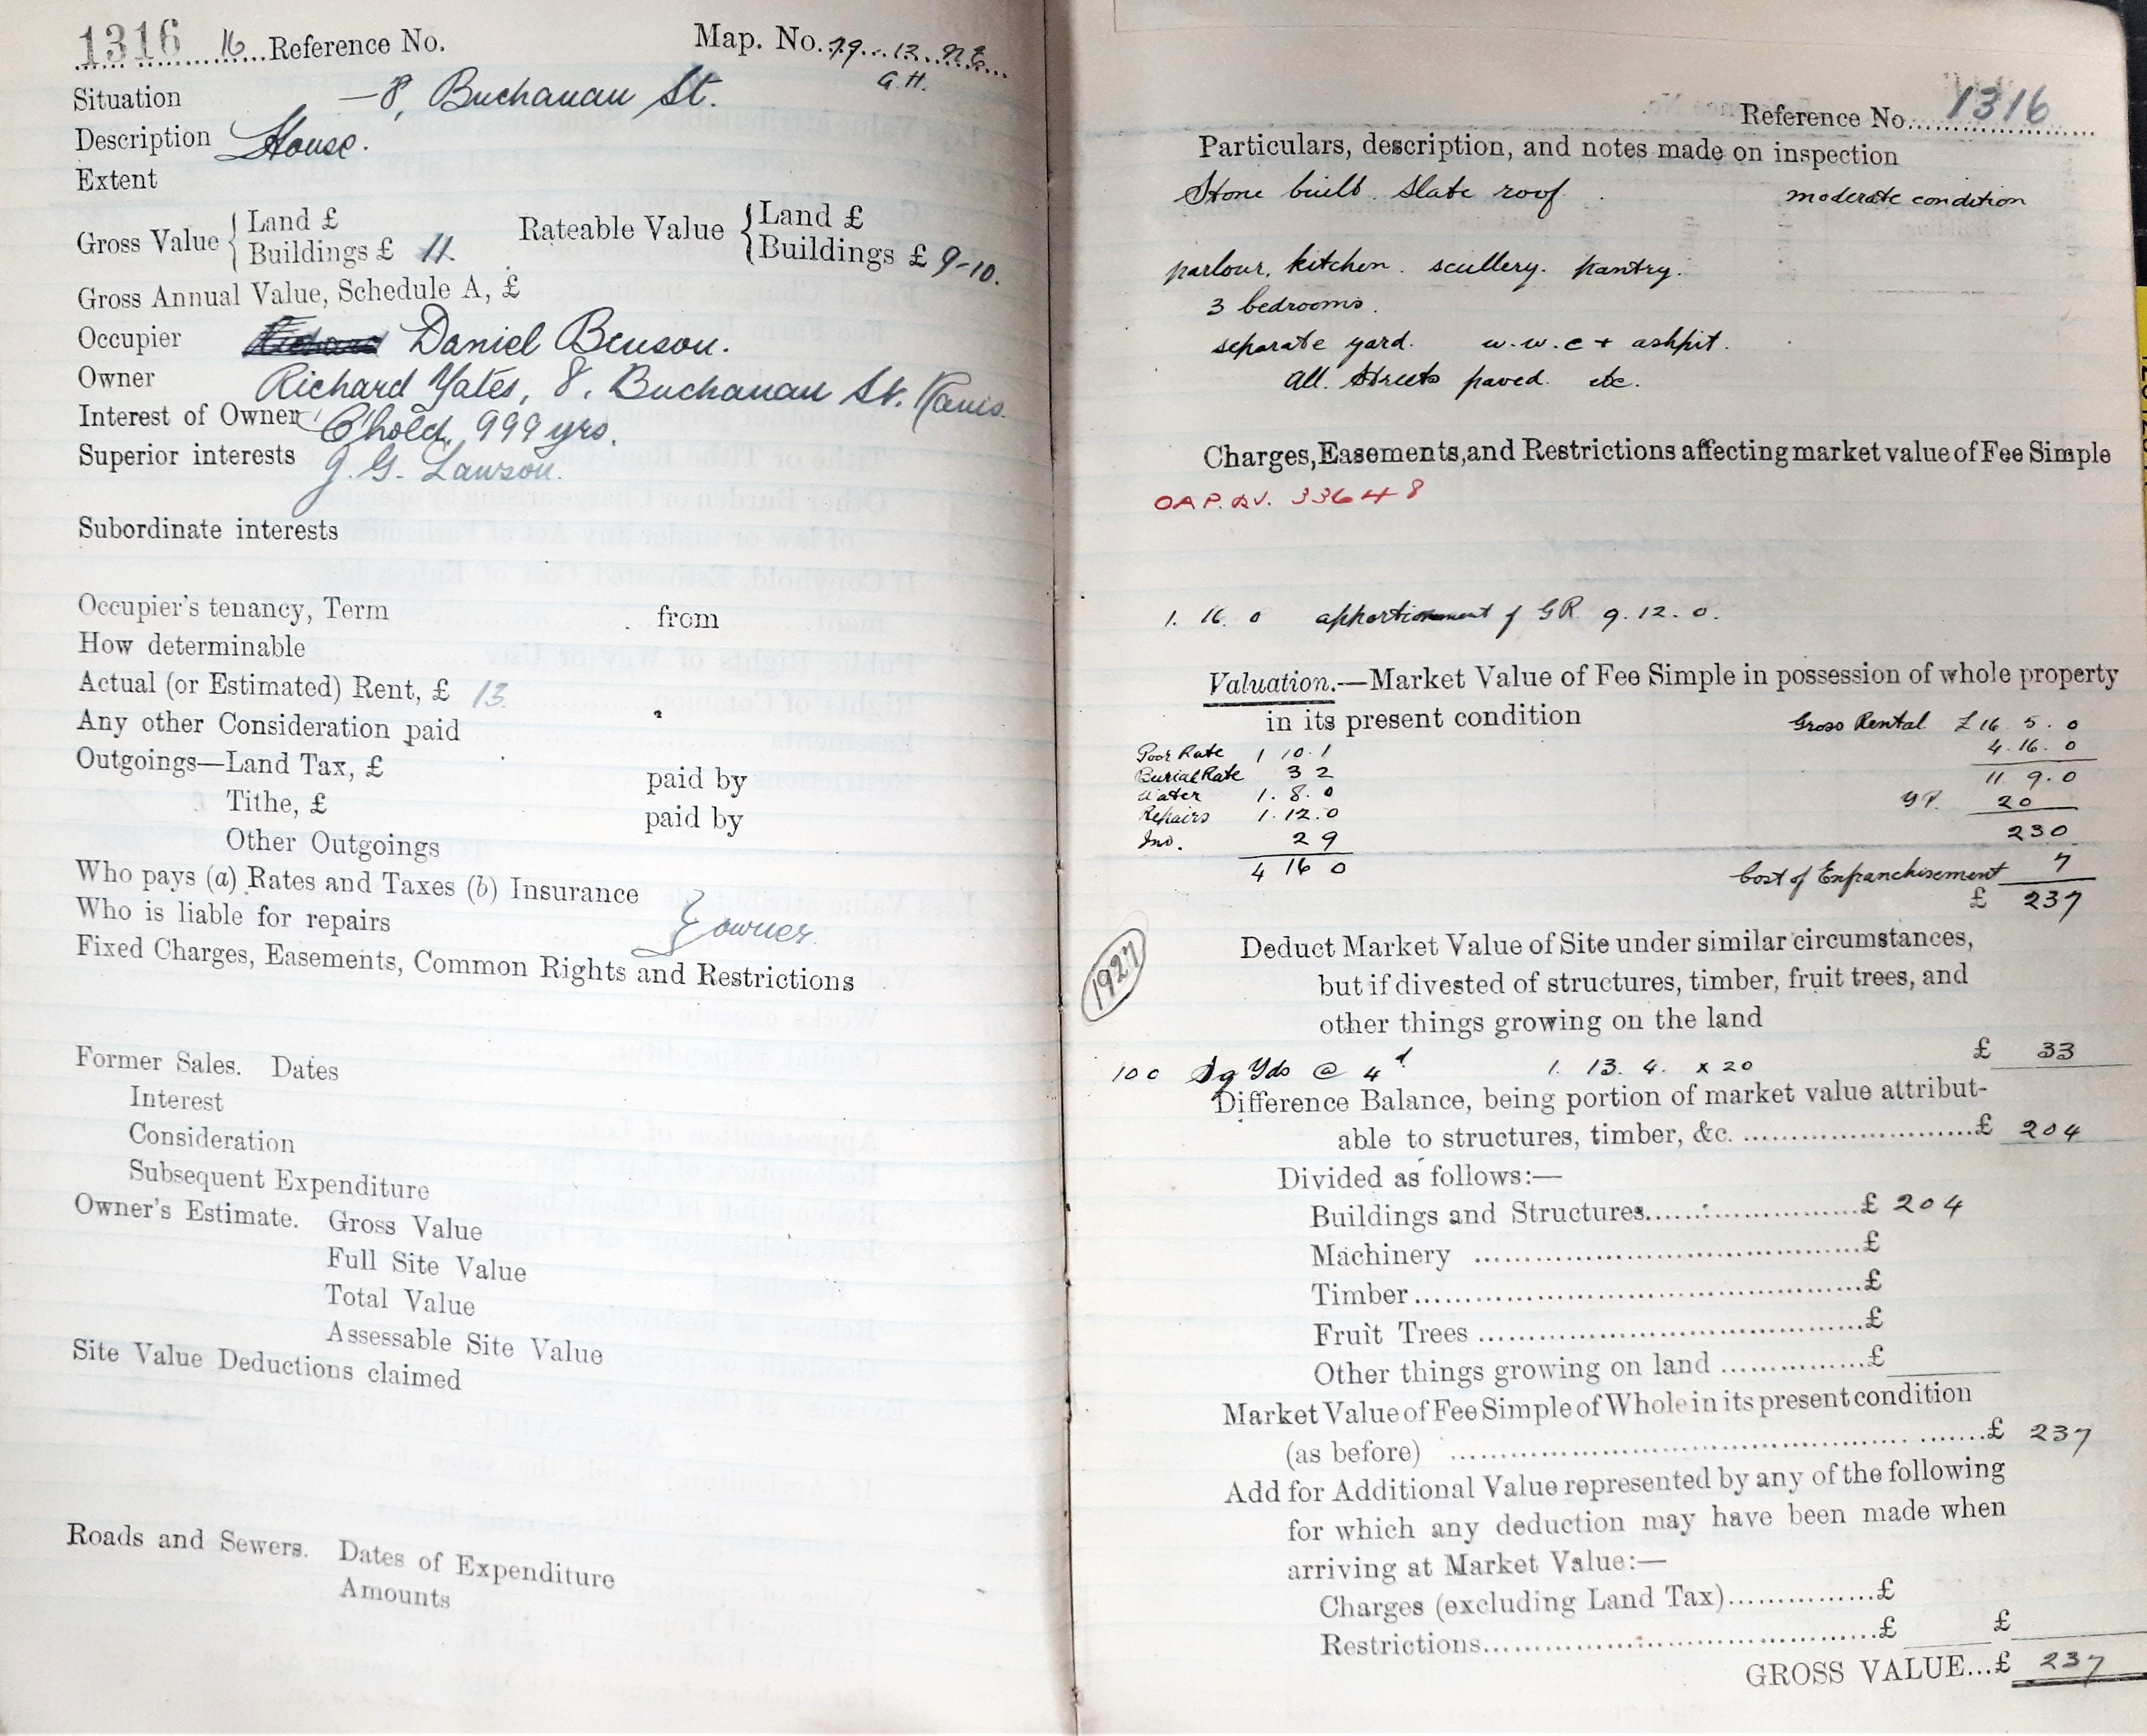 1316 16 Reference No. Map. No. 79. 13. N.E.
G.H.
Situation — 8, Buchanan St.
Description House.
Extent
Gross Value { Land £
Buildings £ 11.
Rateable Value { Land £
Buildings £ 9-10.
Gross Annual Value, Schedule A, £
Occupier Richard Daniel Benson.
Owner Richard Yates, 8, Buchanan St. Rams.
Interest of Owner C'hold, 999 yrs.
Superior interests J. G. Lawson.
Subordinate interests
Occupier's tenancy, Term from
How determinable
Actual (or Estimated) Rent, £ 13.
Any other Consideration paid
Outgoings—Land Tax, £ paid by
Tithe, £ paid by
Other Outgoings
Who pays (a) Rates and Taxes (b) Insurance
Who is liable for repairs } owner.
Fixed Charges, Easements, Common Rights and Restrictions
Former Sales. Dates
Interest
Consideration
Subsequent Expenditure
Owner's Estimate. Gross Value
Full Site Value
Total Value
Assessable Site Value
Site Value Deductions claimed
Roads and Sewers. Dates of Expenditure
Amounts
Reference No. 1316
Particulars, description, and notes made on inspection
Stone built. Slate roof. moderate condition
parlour, kitchen. scullery. pantry.
3 bedrooms.
separate yard. w.w.c + ashpit.
All. Streets paved. etc.
Charges, Easements, and Restrictions affecting market value of Fee Simple
OAP. AV. 33648
1. 16. 0 apportionment of GR 9. 12. 0.
Valuation.—Market Value of Fee Simple in possession of whole property
in its present condition
Gross Rental £16. 5. 0
4. 16. 0
11 9. 0
YP. 20
230
Cost of Enfranchisement 7
£ 237
Poor Rate 1 10. 1
Burial Rate 3 2
Water 1. 8. 0
Repairs 1. 12. 0
Ins. 2 9
4 16 0
1927
Deduct Market Value of Site under similar circumstances,
but if divested of structures, timber, fruit trees, and
other things growing on the land
100 Sq Yds @ 4d 1. 13. 4. x 20 £ 33
Difference Balance, being portion of market value attribut-
able to structures, timber, &c. £ 204
Divided as follows:—
Buildings and Structures £ 204
Machinery £
Timber £
Fruit Trees £
Other things growing on land £
Market Value of Fee Simple of Whole in its present condition
(as before) £ 237
Add for Additional Value represented by any of the following
for which any deduction may have been made when
arriving at Market Value:—
Charges (excluding Land Tax) £
Restrictions £ £
GROSS VALUE...£ 237